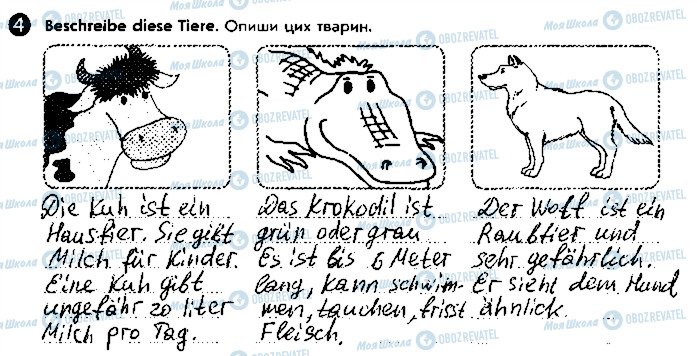 4 Beschreibe diese Tiere. Опиши цих тварин.
Die Kuh ist ein
Haustier. Sie gibt
Milch für Kinder.
Eine Kuh gibt
ungefähr 20 liter
Milch pro Tag.
Das Krokodil ist
grün oder grau
Es ist bis 6 Meter
lang, kann schwim-
men, tauchen, frisst
Fleisch.
Der Wolf ist ein
Raubtier und
sehr gefährlich.
Er sieht dem Hund
ähnlick.
МояШкола OBOZREVATEL